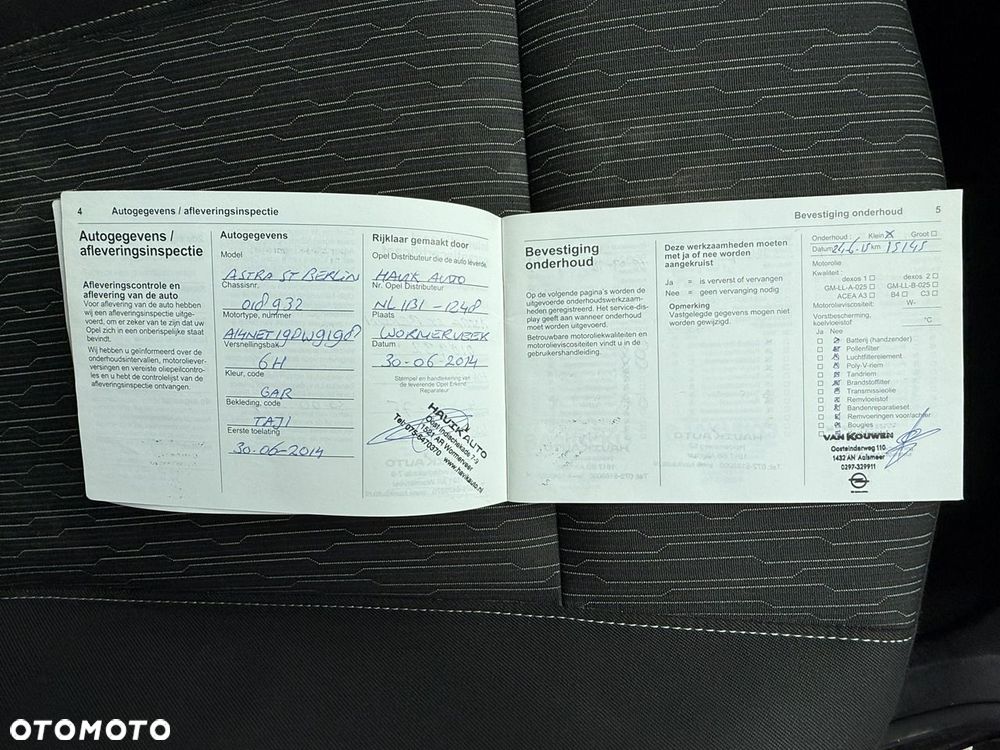 4 Autogegevens / afleveringsinspectie
Autogegevens /
afleveringsinspectie
Afleveringscontrole en
aflevering van de auto
Voor aflevering van de auto hebben
wij een afleveringsinspectie uitge-
voerd, om er zeker van te zijn dat uw
Opel zich in een onberispelijke staat
bevindt.
Wij hebben u geïnformeerd over de
onderhoudsintervallen, motoroliever-
versingen en vereiste oliepeilcontro-
les en u hebt de controlelijst van de
afleveringsinspectie ontvangen.
Autogegevens
Model
ASTRA ST BERLIN
Chassisnr.
018932
Motortype, nummer
Versnellingsbak
6H
Kleur, code
GAR
Bekleding, code
TAJI
Eerste toelating
30-06-2014
Rijklaar gemaakt door
Opel Distributeur die de auto leverde
HAVIK AUTO
Nr. Opel Distributeur
Plaats
WORMERVEER
Datum
30-06-2014
Stempel en handtekening van
de leverende Opel Erkend
Reparateur
HAVIK AUTO
Oost Indischekade 7-9
1521 AR Wormerveer
Tel: 075-6470370 www.havikauto.nl
Bevestiging onderhoud 5
Bevestiging
onderhoud
Op de volgende pagina's worden de
uitgevoerde onderhoudswerkzaam-
heden geregistreerd. Het service-dis-
play geeft aan wanneer onderhoud
moet worden uitgevoerd.
Betrouwbare motoroliekwaliteiten en
motorolieviscositeiten vindt u in de
gebruikershandleiding.
Deze werkzaamheden moeten
met ja of nee worden
aangekruist
Ja = is ververst of vervangen
Nee = geen vervanging nodig
Opmerking
Vastgelegde gegevens mogen niet
worden gewijzigd.
Onderhoud : Klein X Groot
Datum 24.6.15 km 15145
Motorolie
Kwaliteit :
dexos 1 dexos 2
GM-LL-A-025 GM-LL-B-025
ACEA A3 B4 C3
Motorolieviscositeit: W-
Vorstbescherming,
koelvloestof °C
Ja Nee
Batterij (handzender)
Pollenfilter
Luchtfilterelement
Poly-V-riem
Tandriem
Brandstoffilter
Transmissieolie
Remvloeistof
Bandenreparatieset
Remvoeringen voor/achter
Bougies
VAN KOUWEN
Oosteinderweg 110
1432 AN Aalsmeer
0297-329911
OTOMOTO